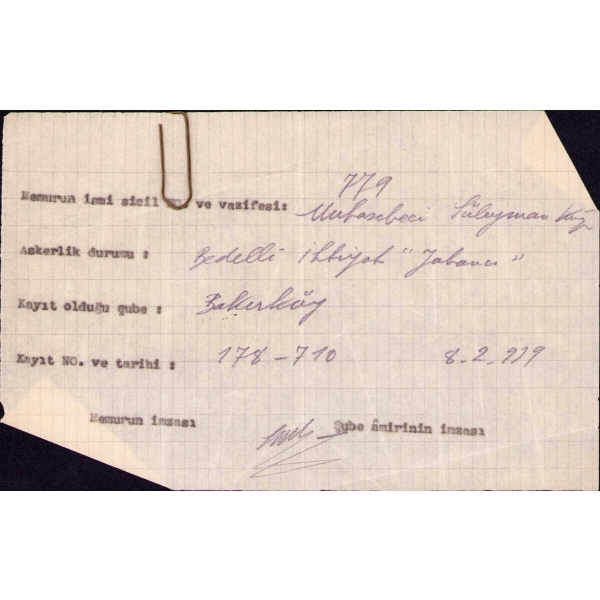 779
Memurun ismi sicil ve vazifesi: Muhasebeci Süleyman
Askerlik durumu : Bedelli ihtiyat "Yabancı"
Kayıt olduğu şube : Bakırköy
Kayıt NO. ve tarihi : 178-710 8-2-939
Memurun imzası Şube âmirinin imzası